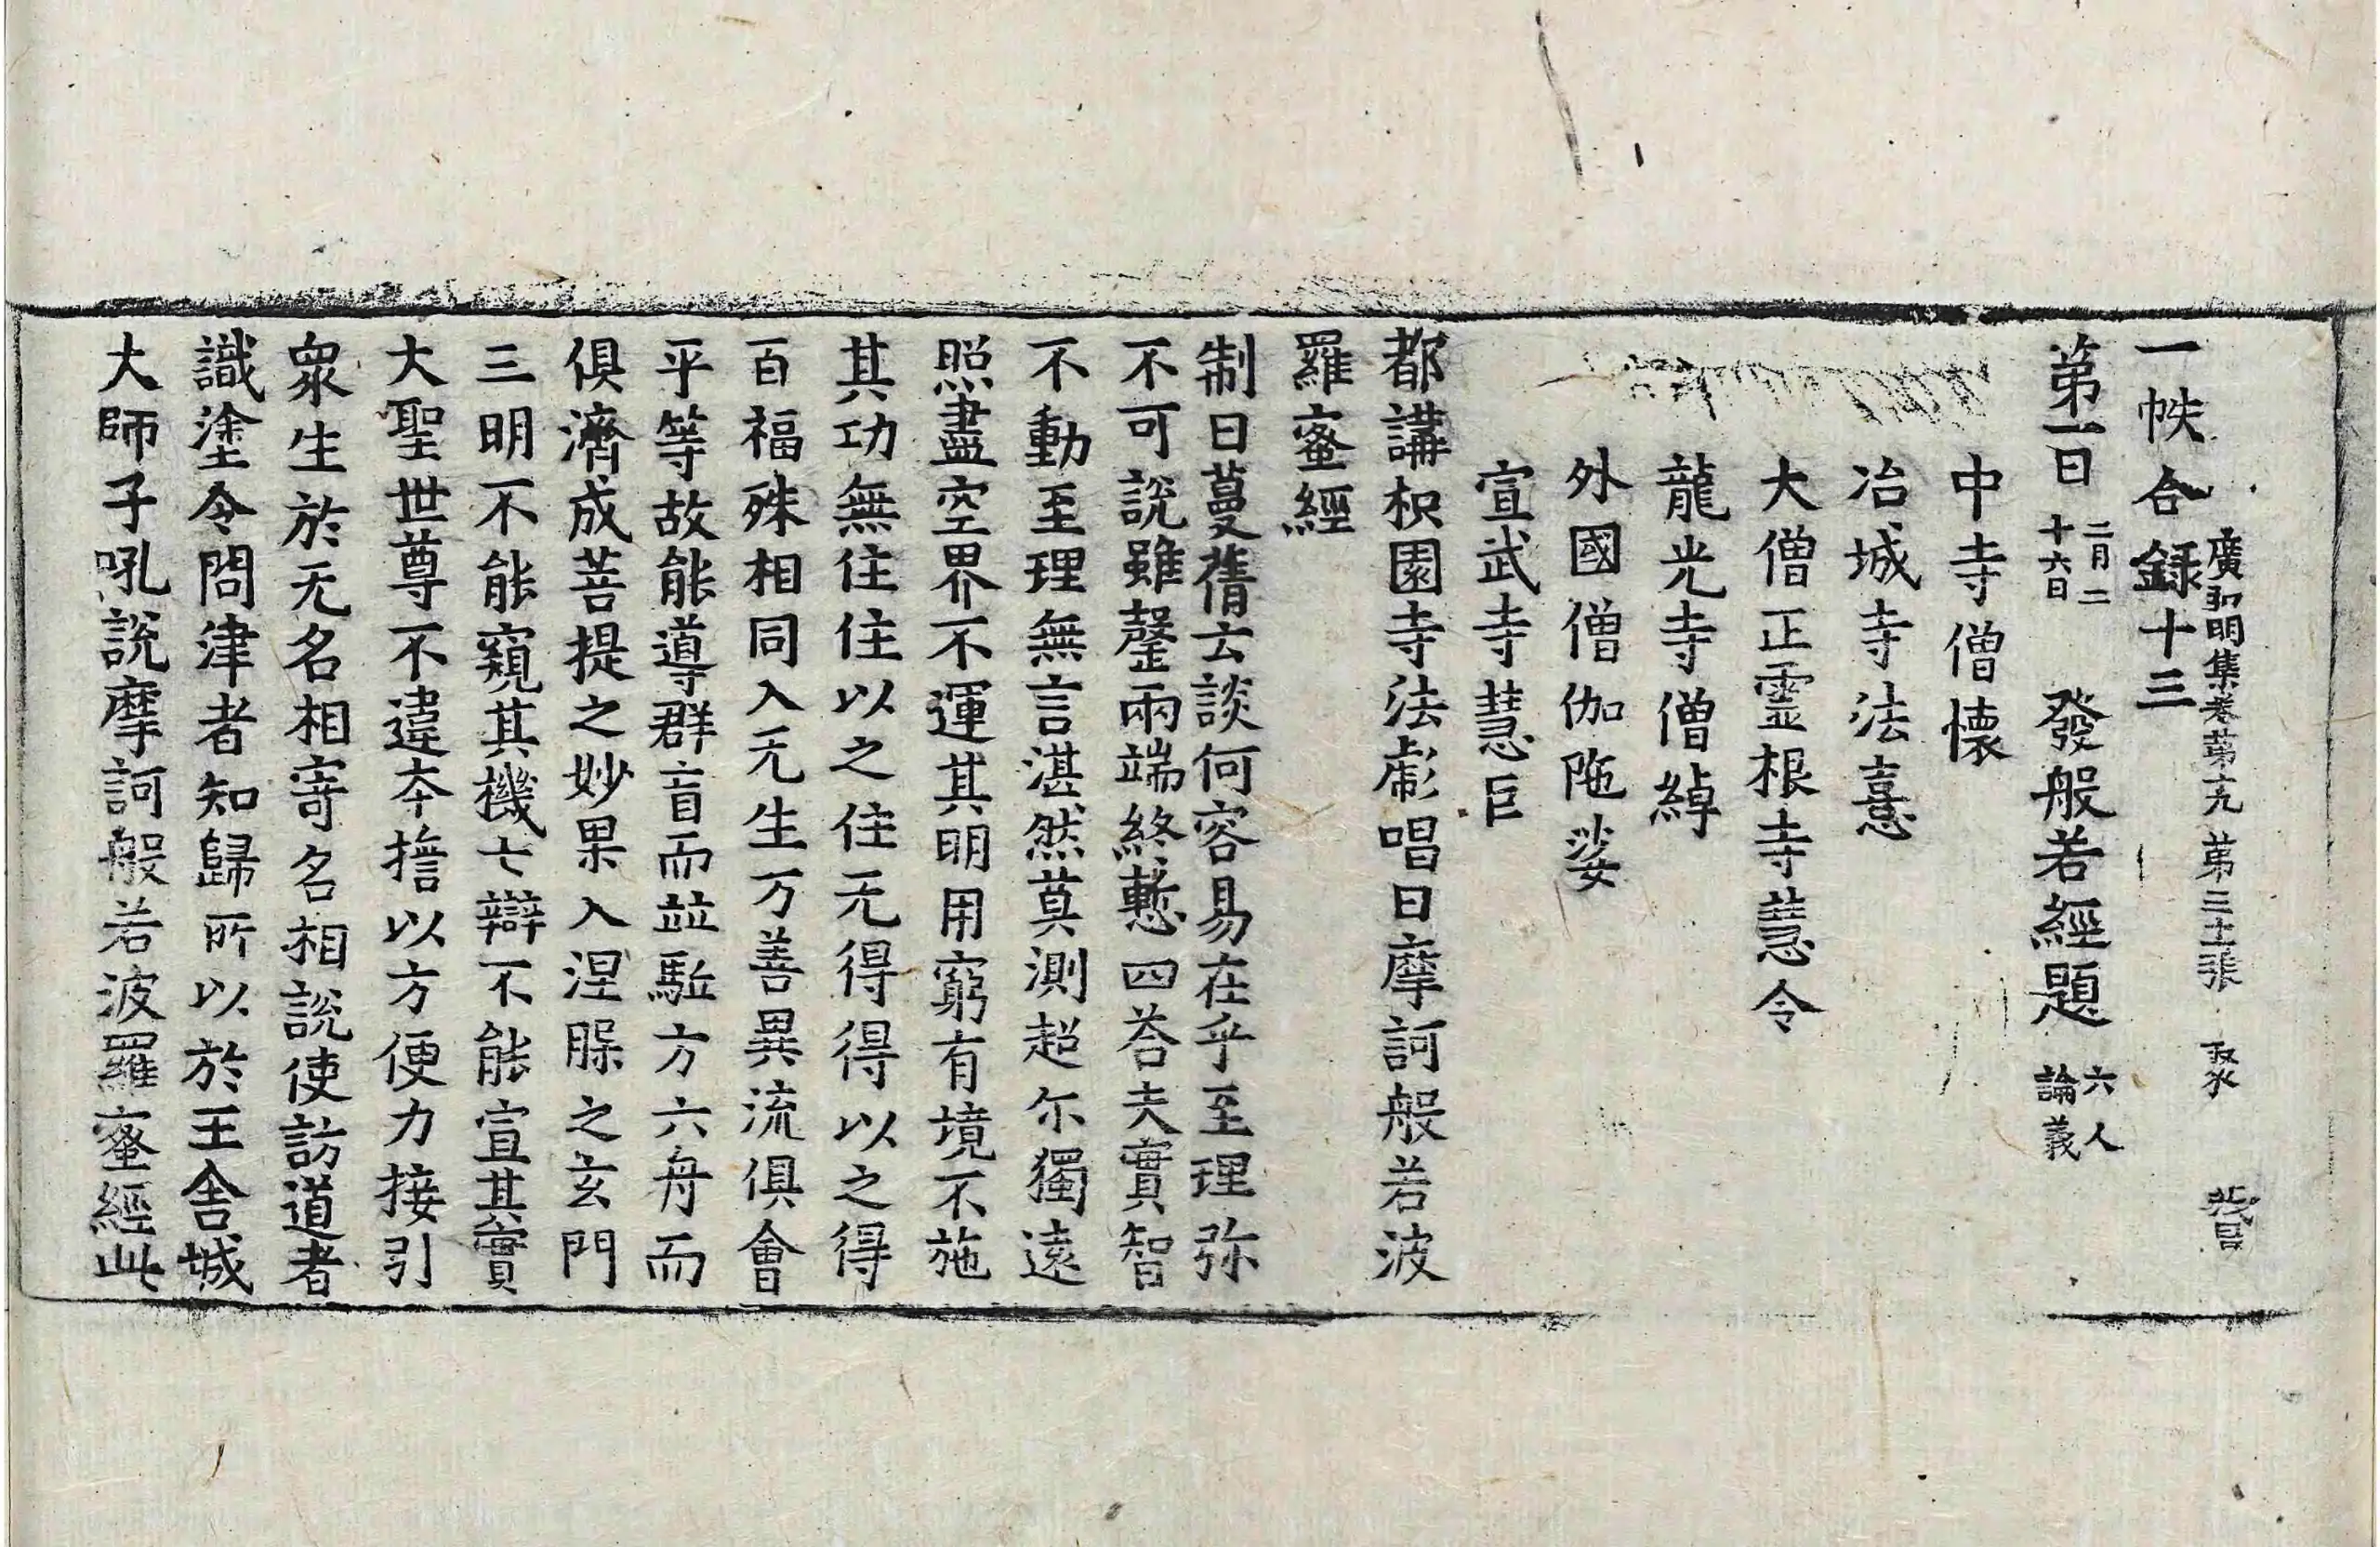 一帙合録十三
廣弘明集卷第十九 第三十張 聚
第一日 二月二十六日 發般若經題 六人論義
中寺僧懷
冶城寺法憙
大僧正靈根寺慧令
龍光寺僧綽
外國僧伽陁娑
宣武寺慧巨
都講枳園寺法彪唱曰摩訶般若波
羅蜜經
制曰蔓蒨云談何容易在乎至理弥
不可說雖罄兩端終慙四荅夫實智
不動至理無言湛然莫測超尓獨遠
照盡空界不運其明用窮有境不施
其功無住住以之住无得得以之得
百福殊相同入无生万善異流俱會
平等故能導群盲而並駈方六舟而
俱濟成菩提之妙果入涅槃之玄門
三明不能窺其機七辯不能宣其實
大聖世尊不違本擔以方便力接引
衆生於无名相寄名相說使訪道者
識塗令問津者知歸所以於王舍城
大師子吼說摩訶般若波羅蜜經此